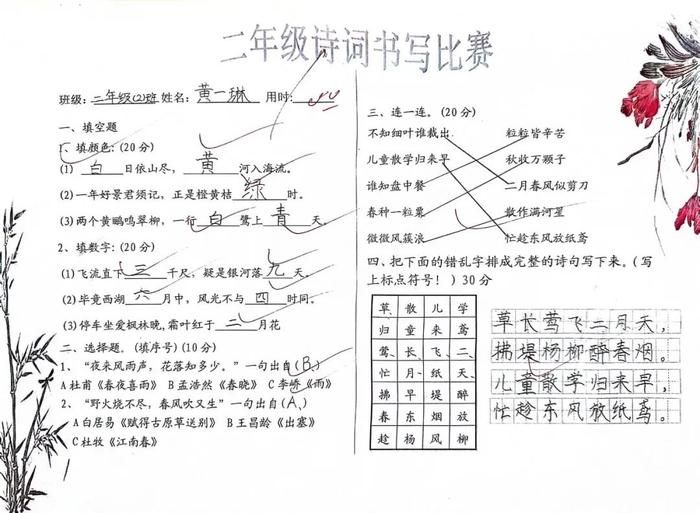 二年级诗词书写比赛
班级：二年级(2)班 姓名：黄一琳 用时：
一、填空题
1、填颜色：(20分)
(1) 白 日依山尽， 黄 河入海流。
(2)一年好景君须记，正是橙黄桔 绿 时。
(3)两个黄鹂鸣翠柳，一行 白 鹭上 青 天。
2、填数字：(20分)
(1)飞流直下 三 千尺，疑是银河落 九 天。
(2)毕竟西湖 六 月中，风光不与 四 时同。
(3)停车坐爱枫林晚，霜叶红于 二 月花
二、选择题。（填序号）(10分)
1、“夜来风雨声，花落知多少。”一句出自(B)
A 杜甫《春夜喜雨》 B 孟浩然《春晓》 C 李峤《雨》
2、“野火烧不尽，春风吹又生”一句出自(A)
A 白居易《赋得古原草送别》 B 王昌龄《出塞》
C 杜牧《江南春》
三、连一连。(20分)
不知细叶谁裁出 粒粒皆辛苦
儿童散学归来早 秋收万颗子
谁知盘中餐 二月春风似剪刀
春种一粒粟 散作满河星
微微风簇浪 忙趁东风放纸鸢
四、把下面的错乱字排成完整的诗句写下来。（写
上标点符号！）30分
草 散 儿 学
归 童 来 鸢
莺 长 飞 二
忙 月 纸 天
拂 早 堤 醉
春 东 烟 放
趁 杨 风 柳
草长莺飞二月天，
拂堤杨柳醉春烟。
儿童散学归来早，
忙趁东风放纸鸢。